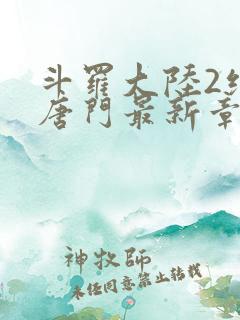 斗羅大陸2
唐門最新章
神牧師
未经同意禁止转载